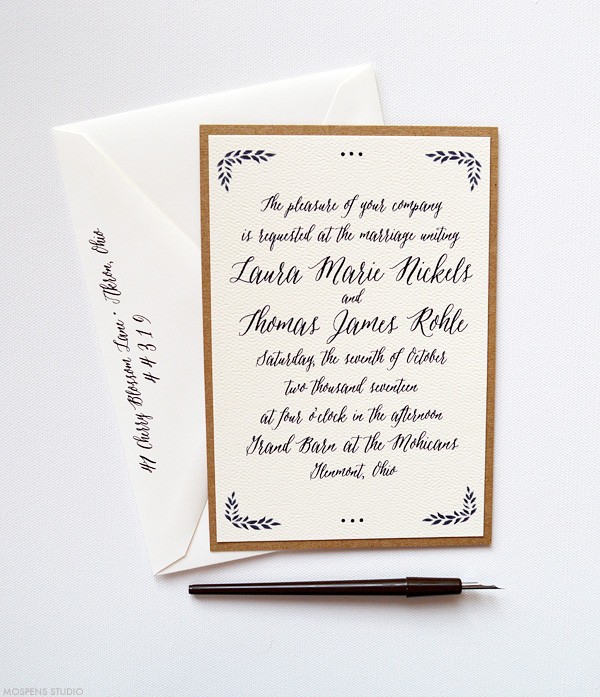 The pleasure of your company
is requested at the marriage uniting
Laura Marie Nickels
and
Thomas James Rohle
Saturday, the seventh of October
two thousand seventeen
at four o'clock in the afternoon
Grand Barn at the Mohicans
Glenmont, Ohio
41 Cherry Blossom Lane • Akron, Ohio
44319
MOSPENS STUDIO